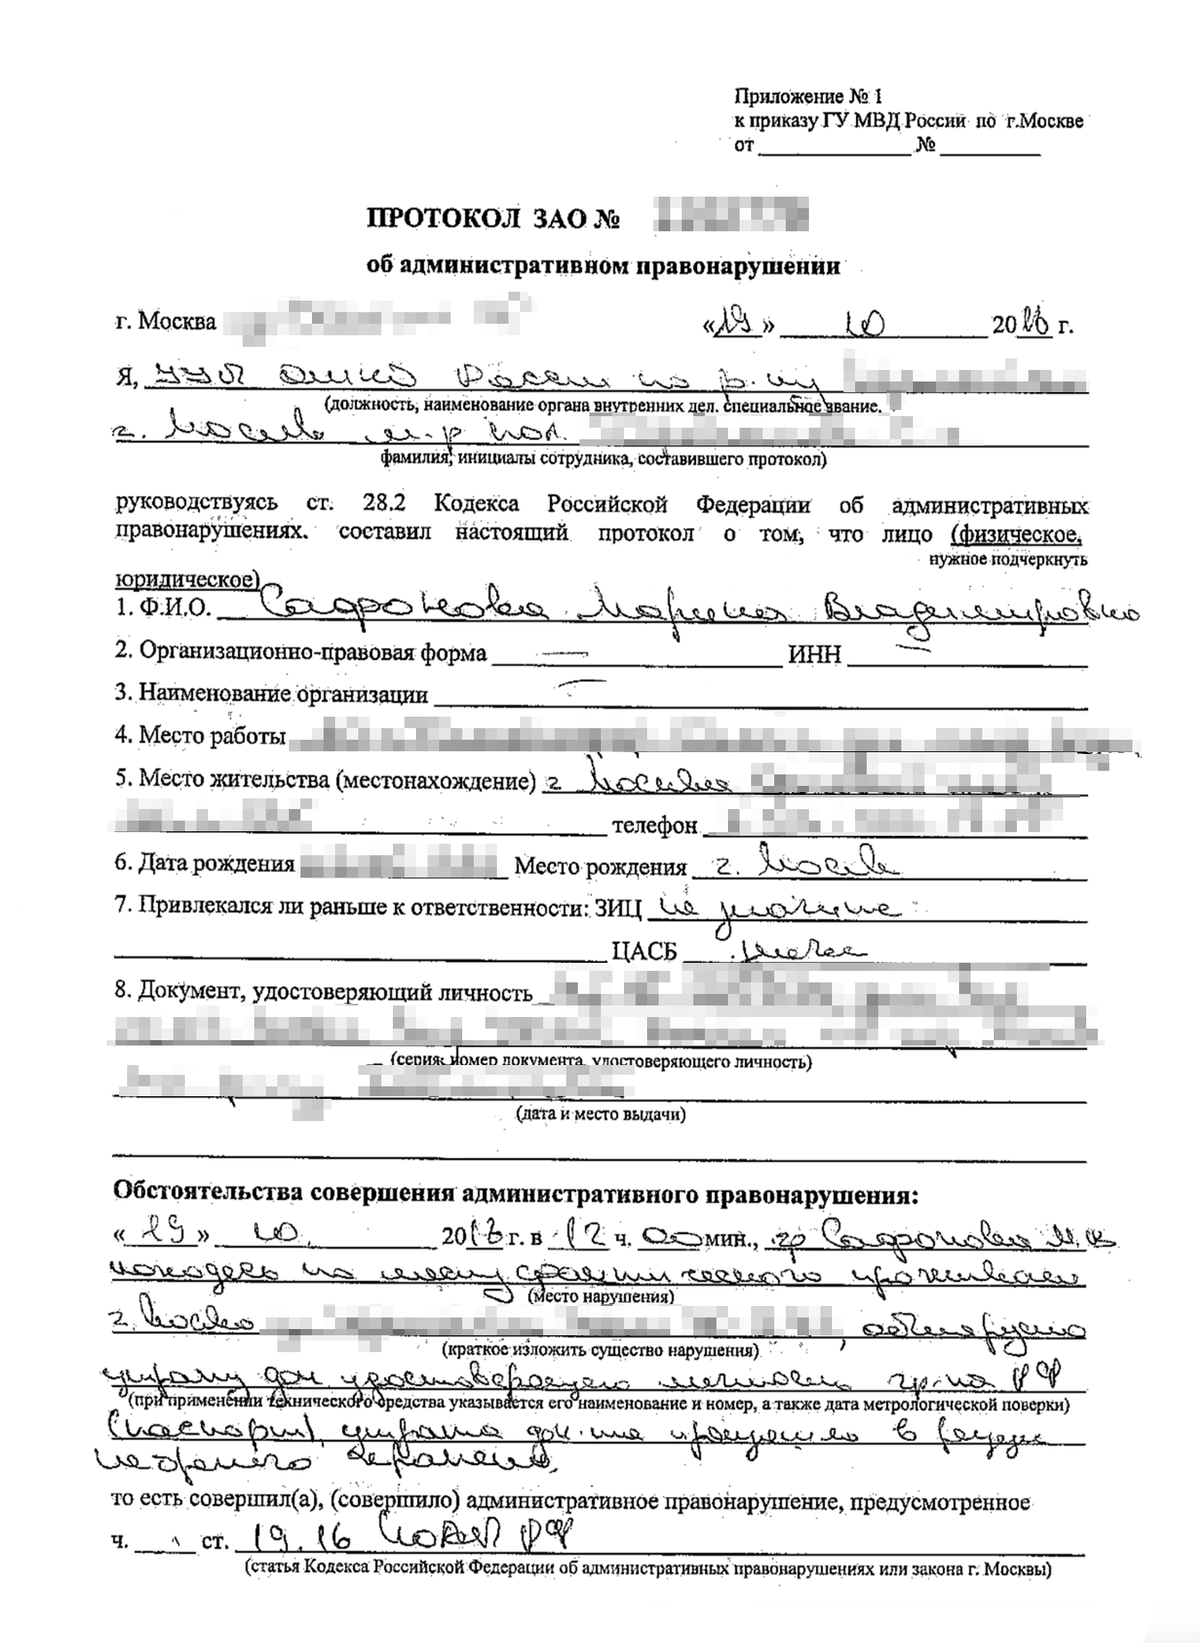 Приложение № 1
к приказу ГУ МВД России по г.Москве
от № 
ПРОТОКОЛ ЗАО №
об административном правонарушении
г. Москва «19» 10 2018 г.
Я, УУП ОМВД России по р-ну
(должность, наименование органа внутренних дел. специальное звание.
г. Москве м-р пол.
фамилия, инициалы сотрудника, составившего протокол)
руководствуясь ст. 28.2 Кодекса Российской Федерации об административных
правонарушениях. составил настоящий протокол о том, что лицо (физическое,
нужное подчеркнуть
юридическое)
1. Ф.И.О. Сафронова Марина Владимировна
2. Организационно-правовая форма — ИНН —
3. Наименование организации —
4. Место работы
5. Место жительства (местонахождение) г Москва
телефон
6. Дата рождения Место рождения г. Москва
7. Привлекался ли раньше к ответственности: ЗИЦ не
ЦАСБ
8. Документ, удостоверяющий личность
(серия, номер документа, удостоверяющего личность)
(дата и место выдачи)
Обстоятельства совершения административного правонарушения:
«19» 10. 2018 г. в 12 ч. 00 мин., гр Сафронова М.В
находясь по месту фактического проживания
(место нарушения)
г. Москва , обнаружила
(краткое изложить существо нарушения)
утрату док удостоверяющего личность гр-на РФ
(при применении технического средства указывается его наименование и номер, а также дата метрологической поверки)
(паспорт), утрата док-та произошло в
небрежного хранения.
то есть совершил(а), (совершило) административное правонарушение, предусмотренное
ч. ст. 19.16 КоАП РФ
(статья Кодекса Российской Федерации об административных правонарушениях или закона г. Москвы)